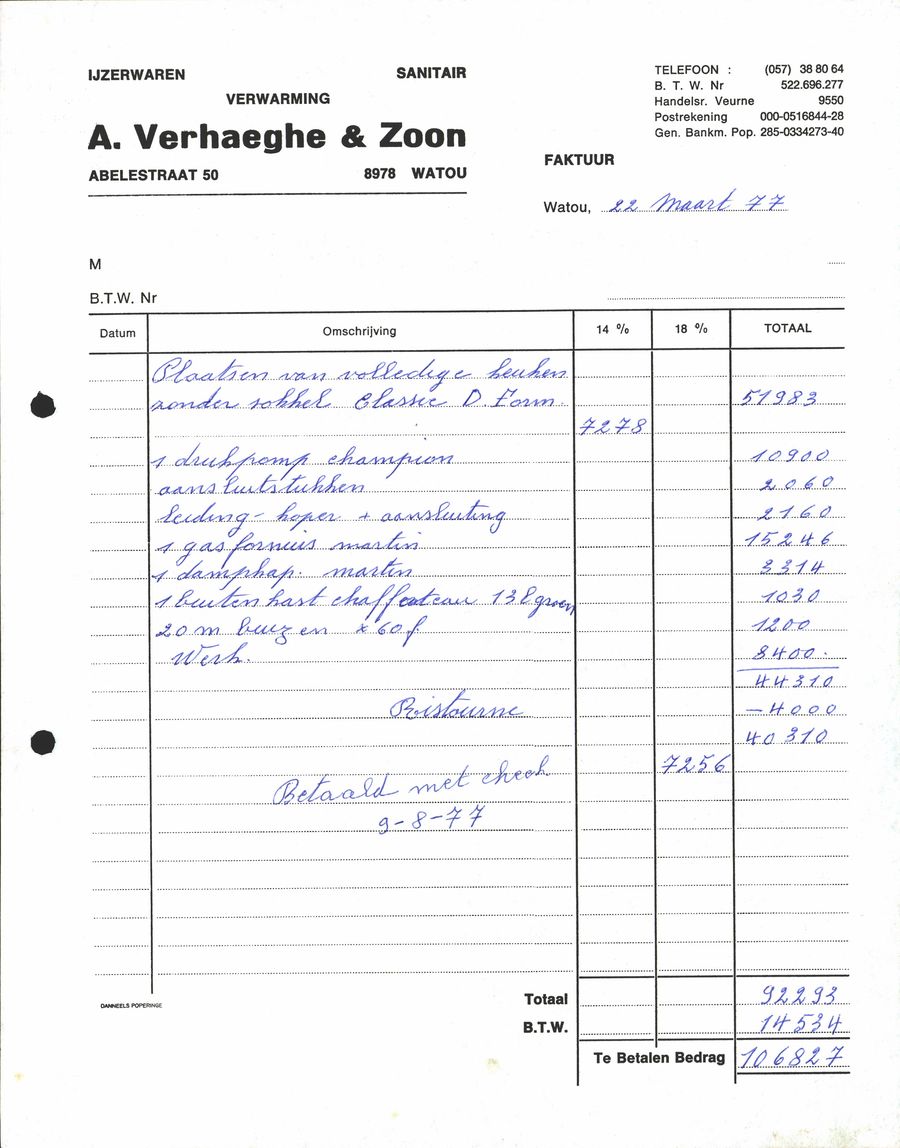 IJZERWAREN SANITAIR
VERWARMING
A. Verhaeghe & Zoon
ABELESTRAAT 50 8978 WATOU
TELEFOON : (057) 38 80 64
B. T. W. Nr 522.696.277
Handelsr. Veurne 9550
Postrekening 000-0516844-28
Gen. Bankm. Pop. 285-0334273-40
FAKTUUR
Watou, 22 Maart 77
M
B.T.W. Nr
Datum Omschrijving 14 % 18 % TOTAAL
Plaatsen van volledige keuken
zonder sokkel Classic D. Form. 51983
7278
1 drukpomp champion 10900
aansluitstukken 2060
leiding - koper + aansluiting 2160
1 gasfornuis martin 15246
1 dampkap. martin 3314
1 buitenkast 138 groen 1030
20 m buizen x 60 f 1200
Werk. 8400.
44310
Ristourne -4000
40310
7256
Betaald met check
9-8-77
DANNEELS POPERINGE
Totaal 92293
B.T.W. 14534
Te Betalen Bedrag 106827